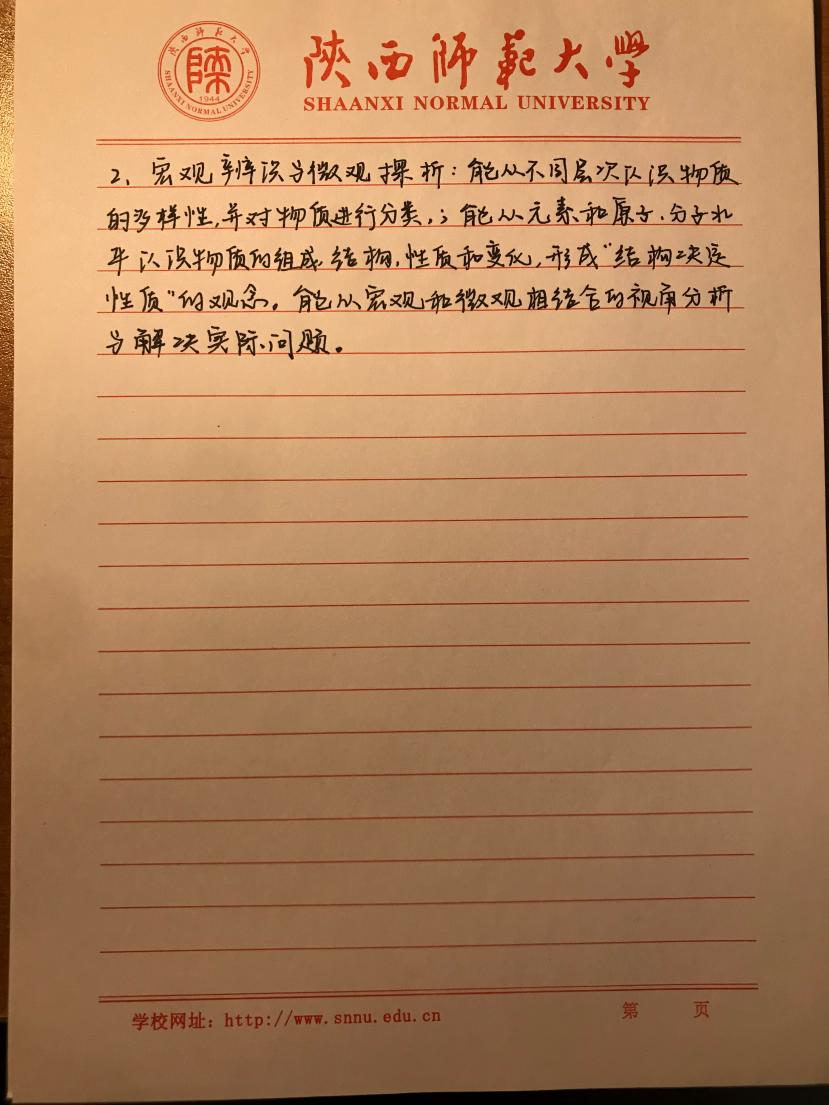 陕西师范大学
SHAANXI NORMAL UNIVERSITY
1944
陕西師範大學
SHAANXI NORMAL UNIVERSITY
2、宏观辨识与微观探析：能从不同层次认识物质
的多样性,并对物质进行分类,；能从元素和原子、分子水
平认识物质的组成、结构、性质和变化,形成“结构决定
性质”的观念。能从宏观和微观相结合的视角分析
与解决实际问题。
学校网址：http://www.snnu.edu.cn
第 页